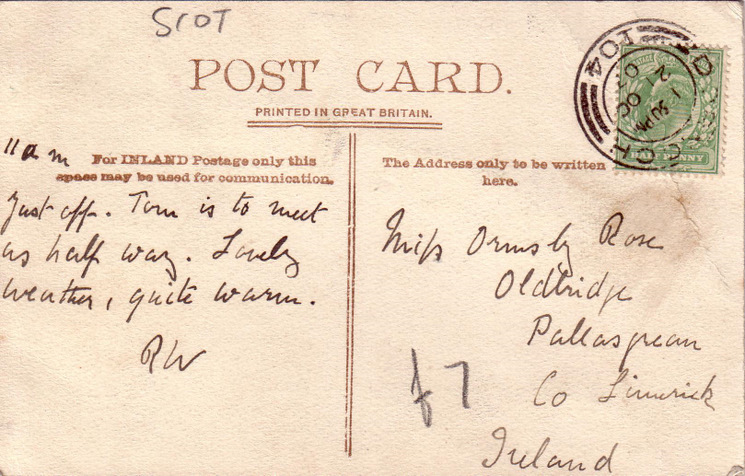 SCOT
POST CARD.
PRINTED IN GREAT BRITAIN.
11 am
For INLAND Postage only this
space may be used for communication.
Just off. Tom is to meet
us half way. Lovely
weather, quite warm.
RW
The Address only to be written
here.
Miss Ormsby Rose
Oldbridge
Pallasgrean
Co Limerick
Ireland
£7
104
12 30 PM
OC 2
HALF PENNY